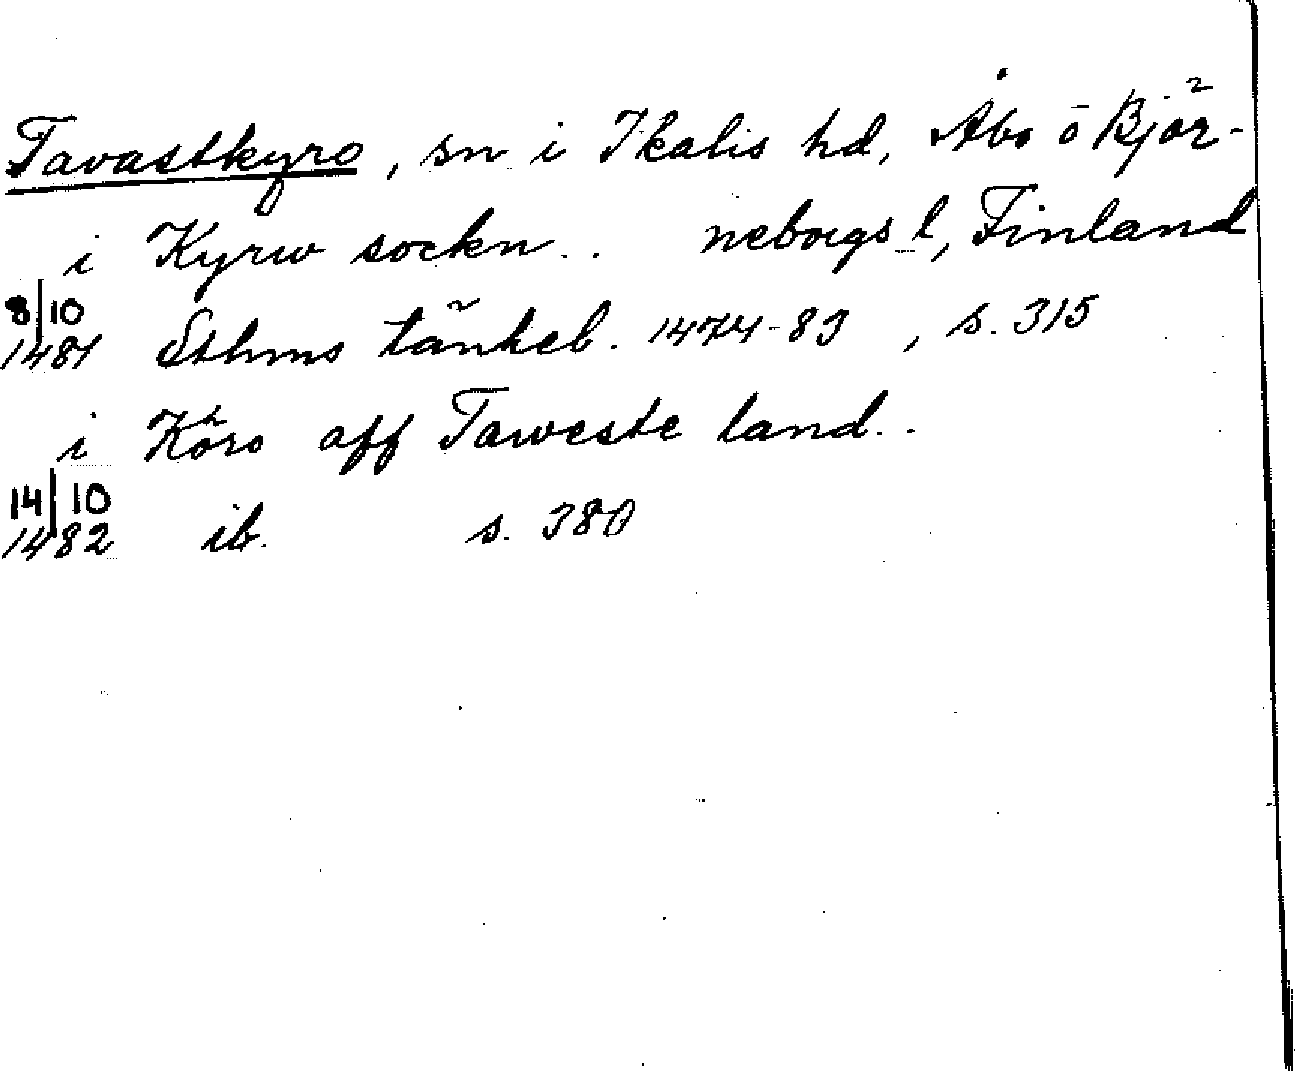 Tavastkyro, sn i Ikalis hd, Åbo o Björ-
i Kyrw sockn.. neborgs l, Finland
8/10
1481 Sthms tänkeb. 1474-83, s. 315
i Köro aff Taweste land..
14/10
1482 ib. s. 380